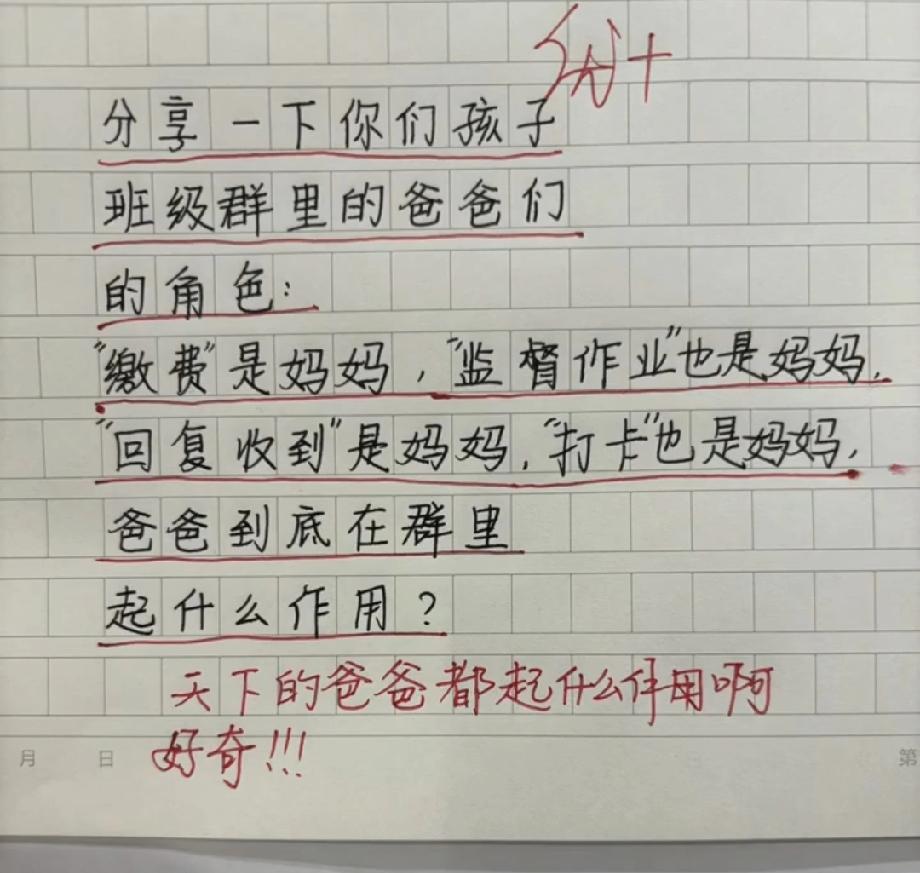 优+
分享一下你们孩子
班级群里的爸爸们
的角色:
"缴费"是妈妈,"监督作业"也是妈妈.
"回复收到"是妈妈,"打卡"也是妈妈.
爸爸到底在群里
起什么作用?
天下的爸爸都起什么作用啊
好奇!!!
月 日 第